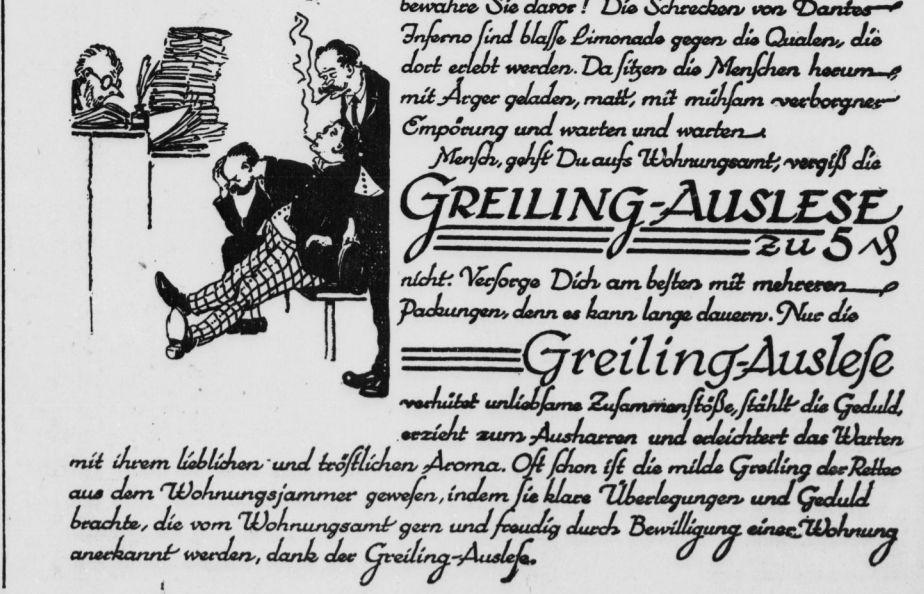 bewahre Sie davor! Die Schrecken von Dantes
Inferno ſind blaſſe Limonade gegen die Qualen, die
dort erlebt werden. Da ſitzen die Menſchen herum,
mit Ärger geladen, matt, mit mühſam verborgner
Empörung und warten und warten.
Menſch, gehſt Du aufs Wohnungsamt, vergiß die
GREILING-AUSLESE
zu 5 ₰
nicht. Verſorge Dich am beſten mit mehreren
Packungen, denn es kann lange dauern. Nur die
Greiling-Ausleſe
verhütet unliebſame Zuſammenſtöße, ſtählt die Geduld,
erzieht zum Ausharren und erleichtert das Warten
mit ihrem lieblichen und tröſtlichen Aroma. Oft ſchon iſt die milde Greiling der Retter
aus dem Wohnungsjammer geweſen, indem ſie klare Überlegungen und Geduld
brachte, die vom Wohnungsamt gern und freudig durch Bewilligung einer Wohnung
anerkannt werden, dank der Greiling-Ausleſe.